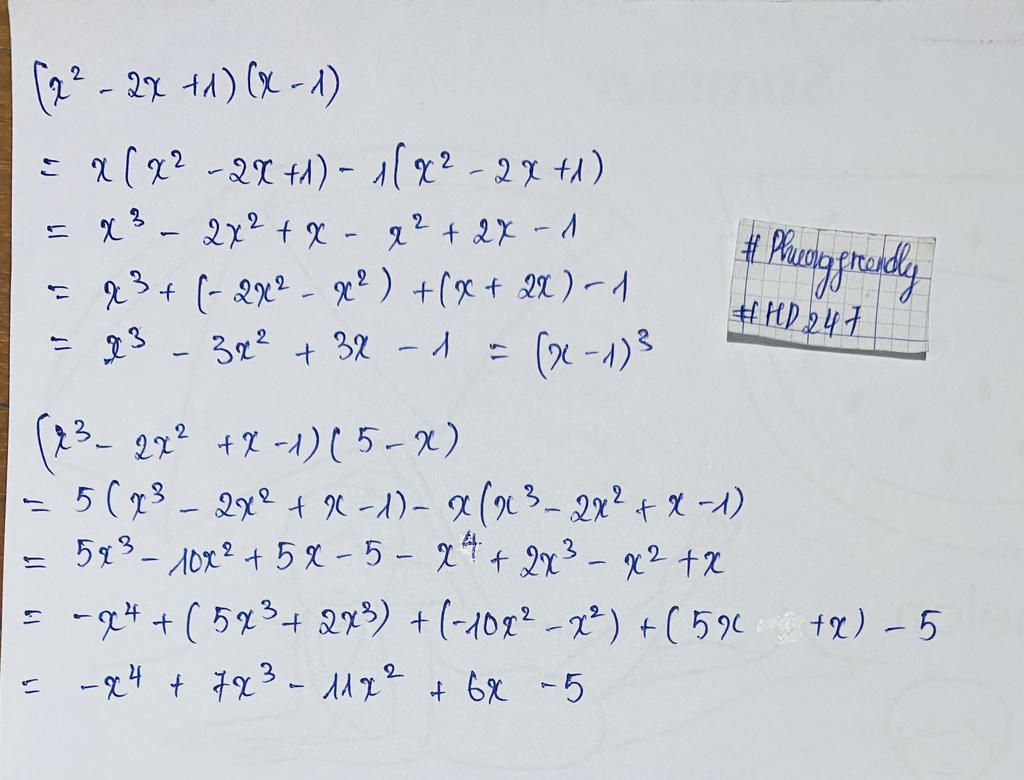 (x² - 2x +1)(x - 1)
= x(x² - 2x +1) - 1(x² - 2x +1)
= x³ - 2x² + x - x² + 2x - 1
= x³ + (- 2x² - x²) + (x + 2x) - 1
= x³ - 3x² + 3x - 1 = (x - 1)³
# Phuonggreendly
#HD247
(x³ - 2x² + x - 1)(5 - x)
= 5(x³ - 2x² + x - 1) - x(x³ - 2x² + x - 1)
= 5x³ - 10x² + 5x - 5 - x⁴ + 2x³ - x² + x
= -x⁴ + (5x³ + 2x³) + (-10x² - x²) + (5x +x) - 5
= -x⁴ + 7x³ - 11x² + 6x - 5